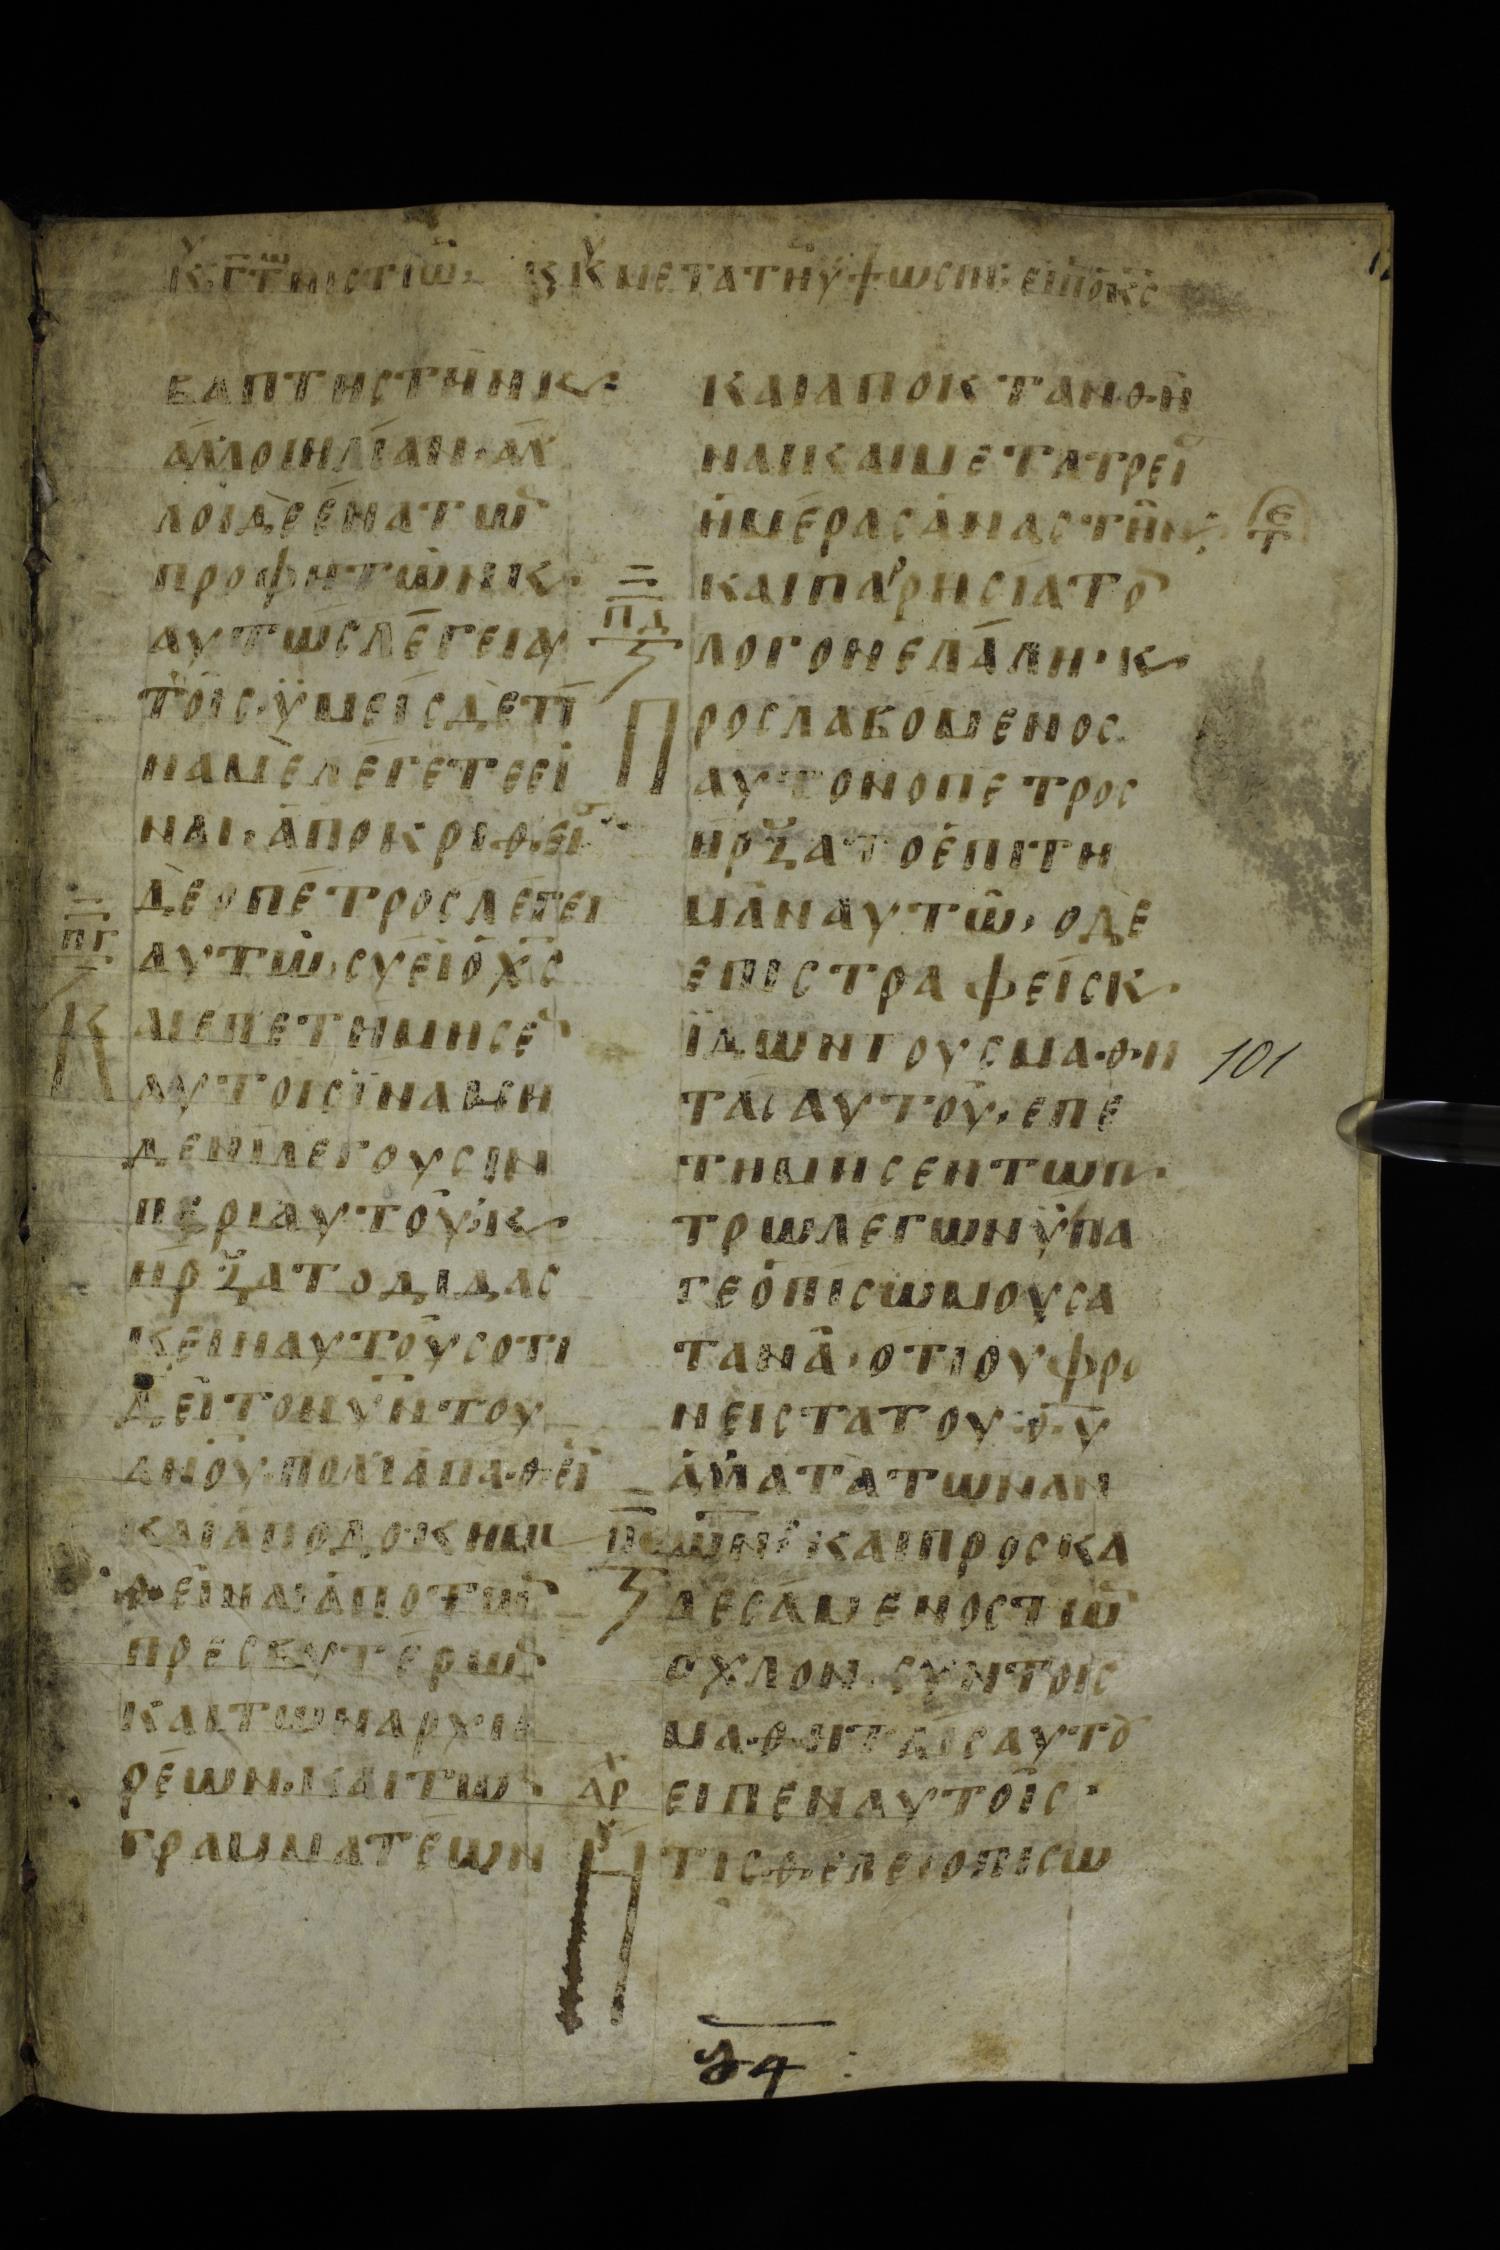 ΒΑΠΤΗСΤΗΝΚ
ΑΛΛΟΙΗΛΙΑΝ·ΑΛ
ΛΟΙΔΕΕΝΑΤΩ
ΠΡΟΦΗΤΩΝΚ·
ΑΥΤΩСΛΕΓΕΙΑΥ
ΤΟΙС·ΫΜΕΙСΔΕΤΙ
ΝΑΜΕΛΕΓΕΤΕΕΙ
ΝΑΙ·ΑΠΟΚΡΙΘΕΙ
ΔΕΟΠΕΤΡΟСΛΕΓΕΙ
ΑΥΤΩ·СΥΕΙΟΧС
ΚΑΙΕΠΕΤΗΜΗСΕ
ΑΥΤΟΙСΪΝΑΜΗ
ΔΕΝΙΛΕΓΟΥСΙΝ
ΠΕΡΙΑΥΤΟΥ·Κ
ΗΡΞΑΤΟΔΙΔΑС
ΚΕΙΝΑΥΤΟΥСΟΤΙ
ΔΕΙΤΟΝΥΝΤΟΥ
ΑΝΟΥ·ΠΟΛΛΑΠΑΘΕΙ
ΚΑΙΑΠΟΔΟΚΗΜ
ΘΕΙΝΑΙΑΠΟΤΩ
ΠΡΕСΒΥΤΕΡΩ
ΚΑΙΤΩΝΑΡΧΙΕ
ΡΕΩΝ·ΚΑΙΤΩ
ΓΡΑΜΜΑΤΕΩΝ
ΚΑΙΑΠΟΚΤΑΝΘΗ
ΝΑΙΚΑΙΜΕΤΑΤΡΕΙ
ΗΜΕΡΑСΑΝΑСΤΗΝ
ΚΑΙΠΑΡΡΗСΙΑΤΟ
ΛΟΓΟΝΕΛΑΛΗ·Κ
ΠΡΟСΛΑΒΟΜΕΝΟС
ΑΥΤΟΝΟΠΕΤΡΟС
ΗΡΞΑΤΟΕΠΙΤΗ
ΜΑΝΑΥΤΩ·ΟΔΕ
ΕΠΙСΤΡΑΦΕΙСΚ
ΪΔΩΝΤΟΥСΜΑΘΗ
ΤΑСΑΥΤΟΥ·ΕΠΕ
ΤΗΜΗСΕΝΤΩΠ
ΤΡΩΛΕΓΩΝΫΠΑ
ΓΕΟΠΙСΩΜΟΥСΑ
ΤΑΝΑ·ΟΤΙΟΥΦΡΟ
ΝΕΙСΤΑΤΟΥΘΥ
ΑΛΛΑΤΑΤΩΝΑΝ
ΩΝ·ΚΑΙΠΡΟСΚΑ
ΛΕСΑΜΕΝΟСΤΩ
ΟΧΛΟΝ·СΥΝΤΟΙС
ΜΑΘΗΤΑΙСΑΥΤΟ
ΕΙΠΕΝΑΥΤΟΙС·
ΤΙСΘΕΛΕΙΟΠΙСΩ
ΠΓ
ΠΔ
ΑΡ
101